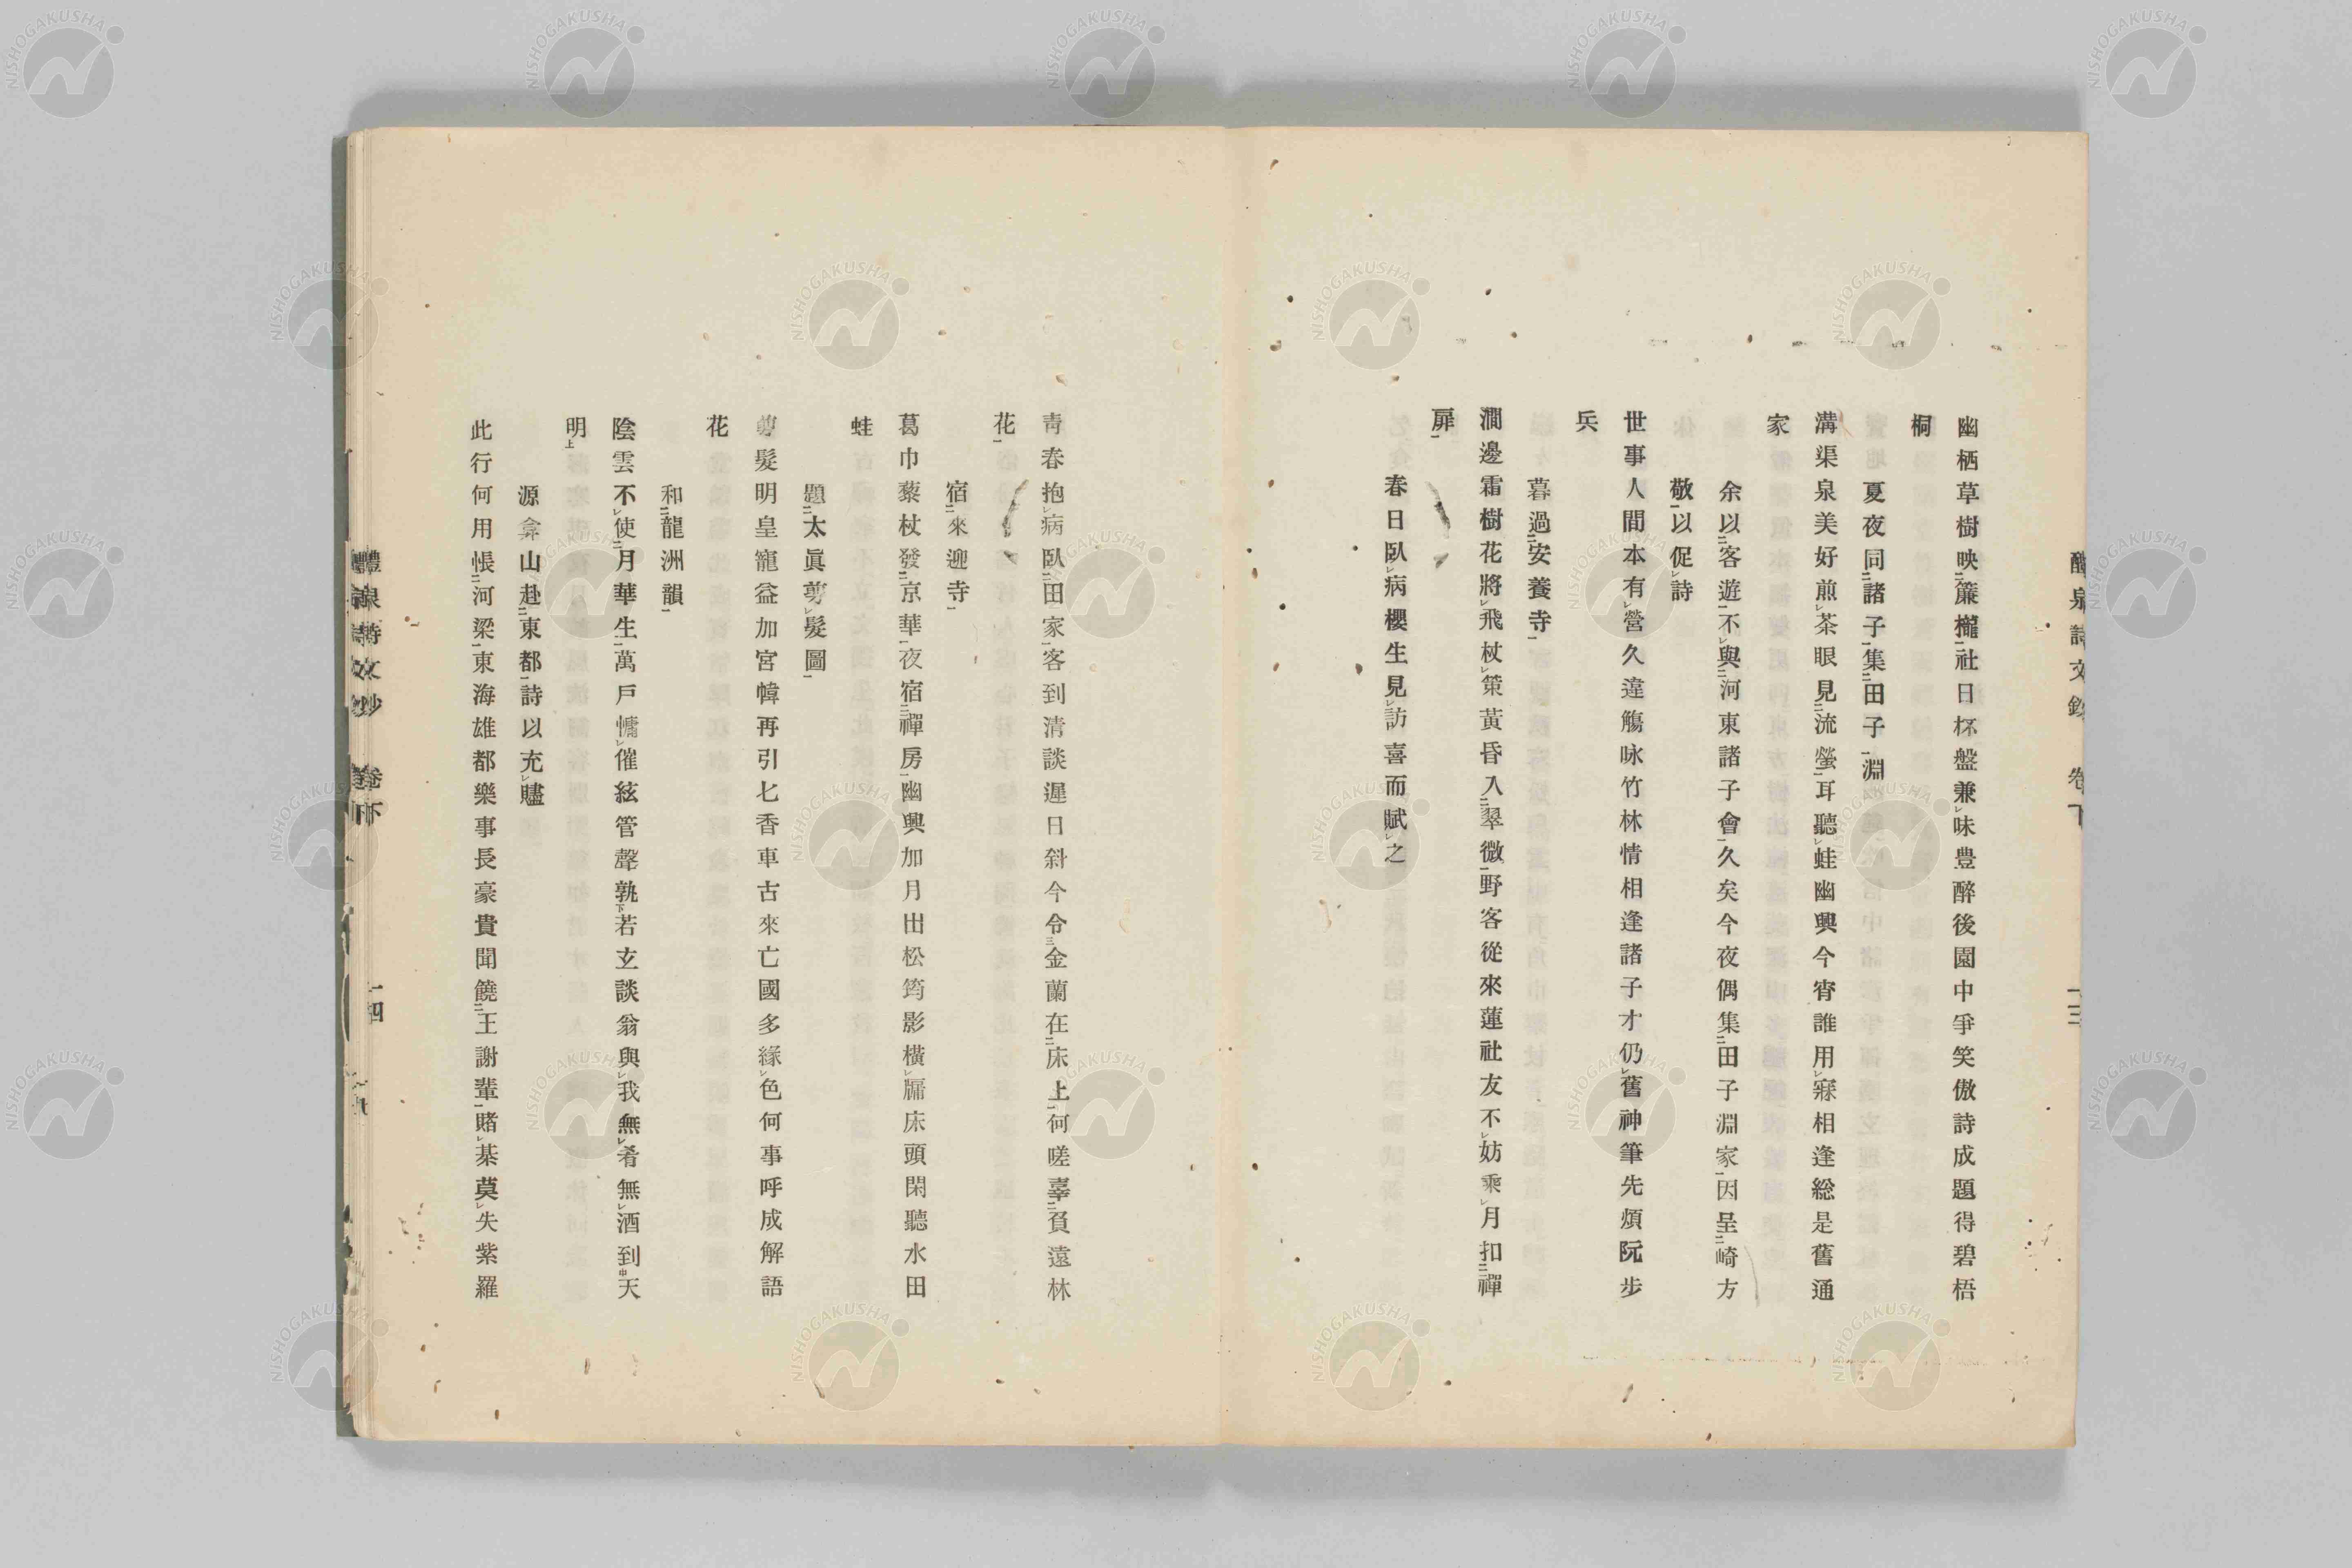 幽栖草樹映二簾櫳一社日杯盤兼レ味豊醉後園中爭笑傲詩成題得碧梧
桐
夏夜同二諸子一集二田子一淵
溝渠泉美好煎レ茶眼見二流螢一耳聽レ蛙幽興今宵誰用レ寐相逢総是舊通
家
余以二客遊一不レ與二河東諸子會一久矣今夜偶集二田子淵家一因呈二崎方
敬一以促レ詩
世事人間本有レ營久違觴咏竹林情相逢諸子才仍レ舊神筆先煩阮步
兵
暮過二安養寺一
澗邊霜樹花將レ飛杖レ策黃昏入二翠微一野客從來蓮社友不レ妨乘レ月扣二禪
扉一
春日臥レ病櫻生見レ訪喜而賦レ之
靑春抱レ病臥二田家一客到淸談遲日斜今令三金蘭在二床上一何嗟辜二負遠林
花一
宿二來迎寺一
葛巾藜杖發二京華一夜宿二禪房一幽興加月出松筠影橫レ牖床頭閑聽水田
蛙
題二太眞剪レ髮圖一
剪髮明皇寵益加宮幃再引七香車古來亡國多緣レ色何事呼成解語
花
和二龍洲韻一
陰雲不レ使二月華生一萬戶慵レ催絃管聲孰下若玄談翁與レ我無レ肴無レ酒到中天
明上
源弇山赴二東都一詩以充レ贐
此行何用悵二河梁一東海雄都樂事長豪貴聞饒二王謝輩一賭レ棊莫レ失紫羅
醴泉詩文鈔　卷下　一三
醴泉詩文鈔　卷下　一四
NISHOGAKUSHA